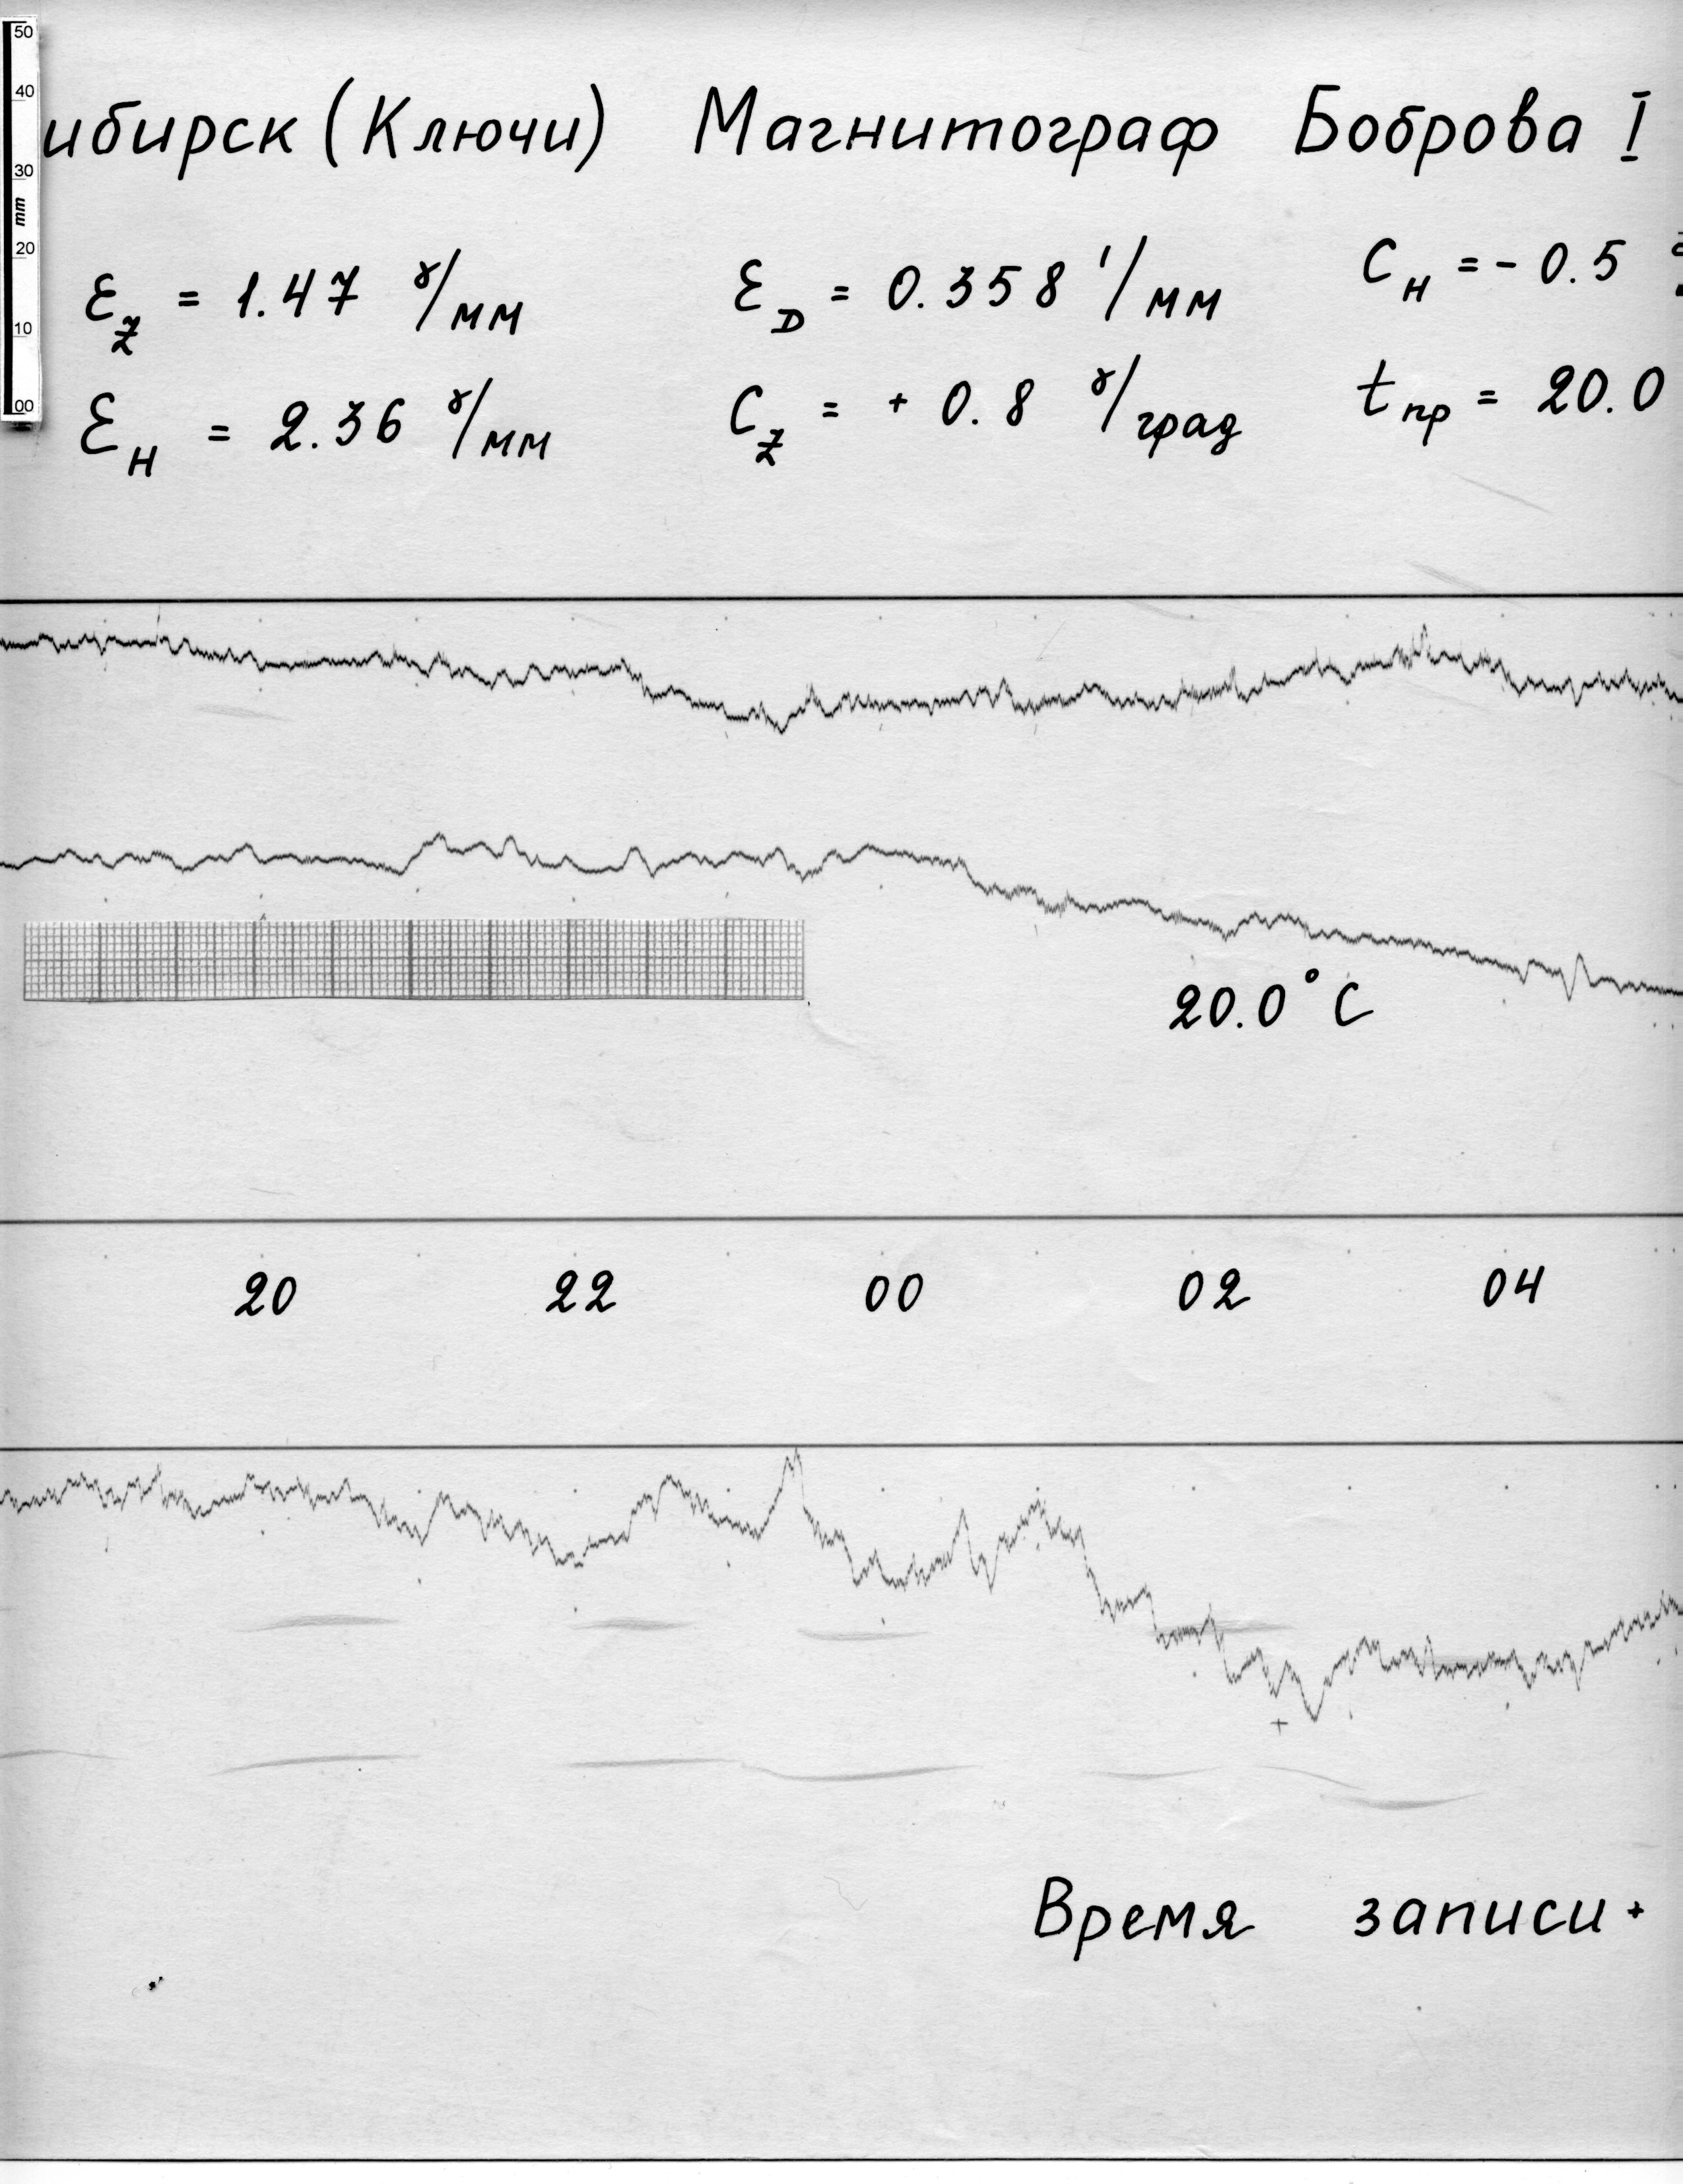 50
40
30
mm
20
10
00
ибирск (Ключи) Магнитограф Боброва I
εZ = 1.47 γ/мм εD = 0.358 '/мм CH = - 0.5
εH = 2.36 γ/мм CZ = + 0.8 γ/град tпр = 20.0
20.0° C
20 22 00 02 04
Время записи